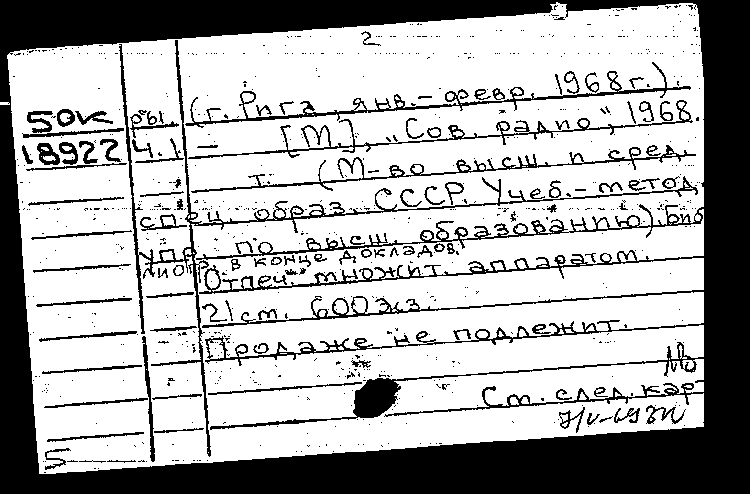 2
50к ры. (г. Рига, янв.-февр. 1968г.).
18922 Ч.1 - [М.], „Сов. радио", 1968.
т. (М-во высш. и сред.
спец. образ. СССР. Учеб.-метод.
упр. по высш. образованию). Биб
лиогр. в конце докладов.
Отпеч. множит. аппаратом.
21см. 600экз.
Продаже не подлежит.
См. след. кар
5